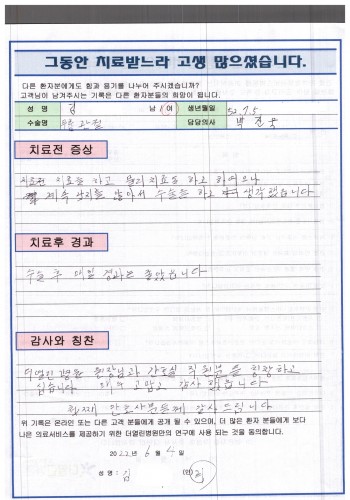 그동안 치료받느라 고생 많으셨습니다.
다른 환자분에게도 힘과 용기를 나누어 주시겠습니까?
고객님이 남겨주시는 기록은 다른 환자분들의 희망이 됩니다.
성 명 김 남 / 여 생년월일 52. 7. 5
수술명 관절 담당의사 박
치료전 증상
치료전 치료를 하고 물리치료를 하고 하여으나
계속 낫지를 않아서 수술을 하고 생각했습니다
치료후 경과
수술 후 매일 경과는 좋았습니다
감사와 칭찬
더열린병원 원장님과 간호실 직원분을 칭찬하고
싶습니다. 매우 고맙고 감사 합니다
간호사분들께 감사드립니다
위 기록은 온라인 또는 다른 고객 분들에게 공개 될 수 있으며, 더 많은 환자 분들에게 보다
나은 의료서비스를 제공하기 위한 더열린병원만의 연구에 사용 되는 것을 동의합니다.
2022년 6월 4일
성 명 : 김 (인)